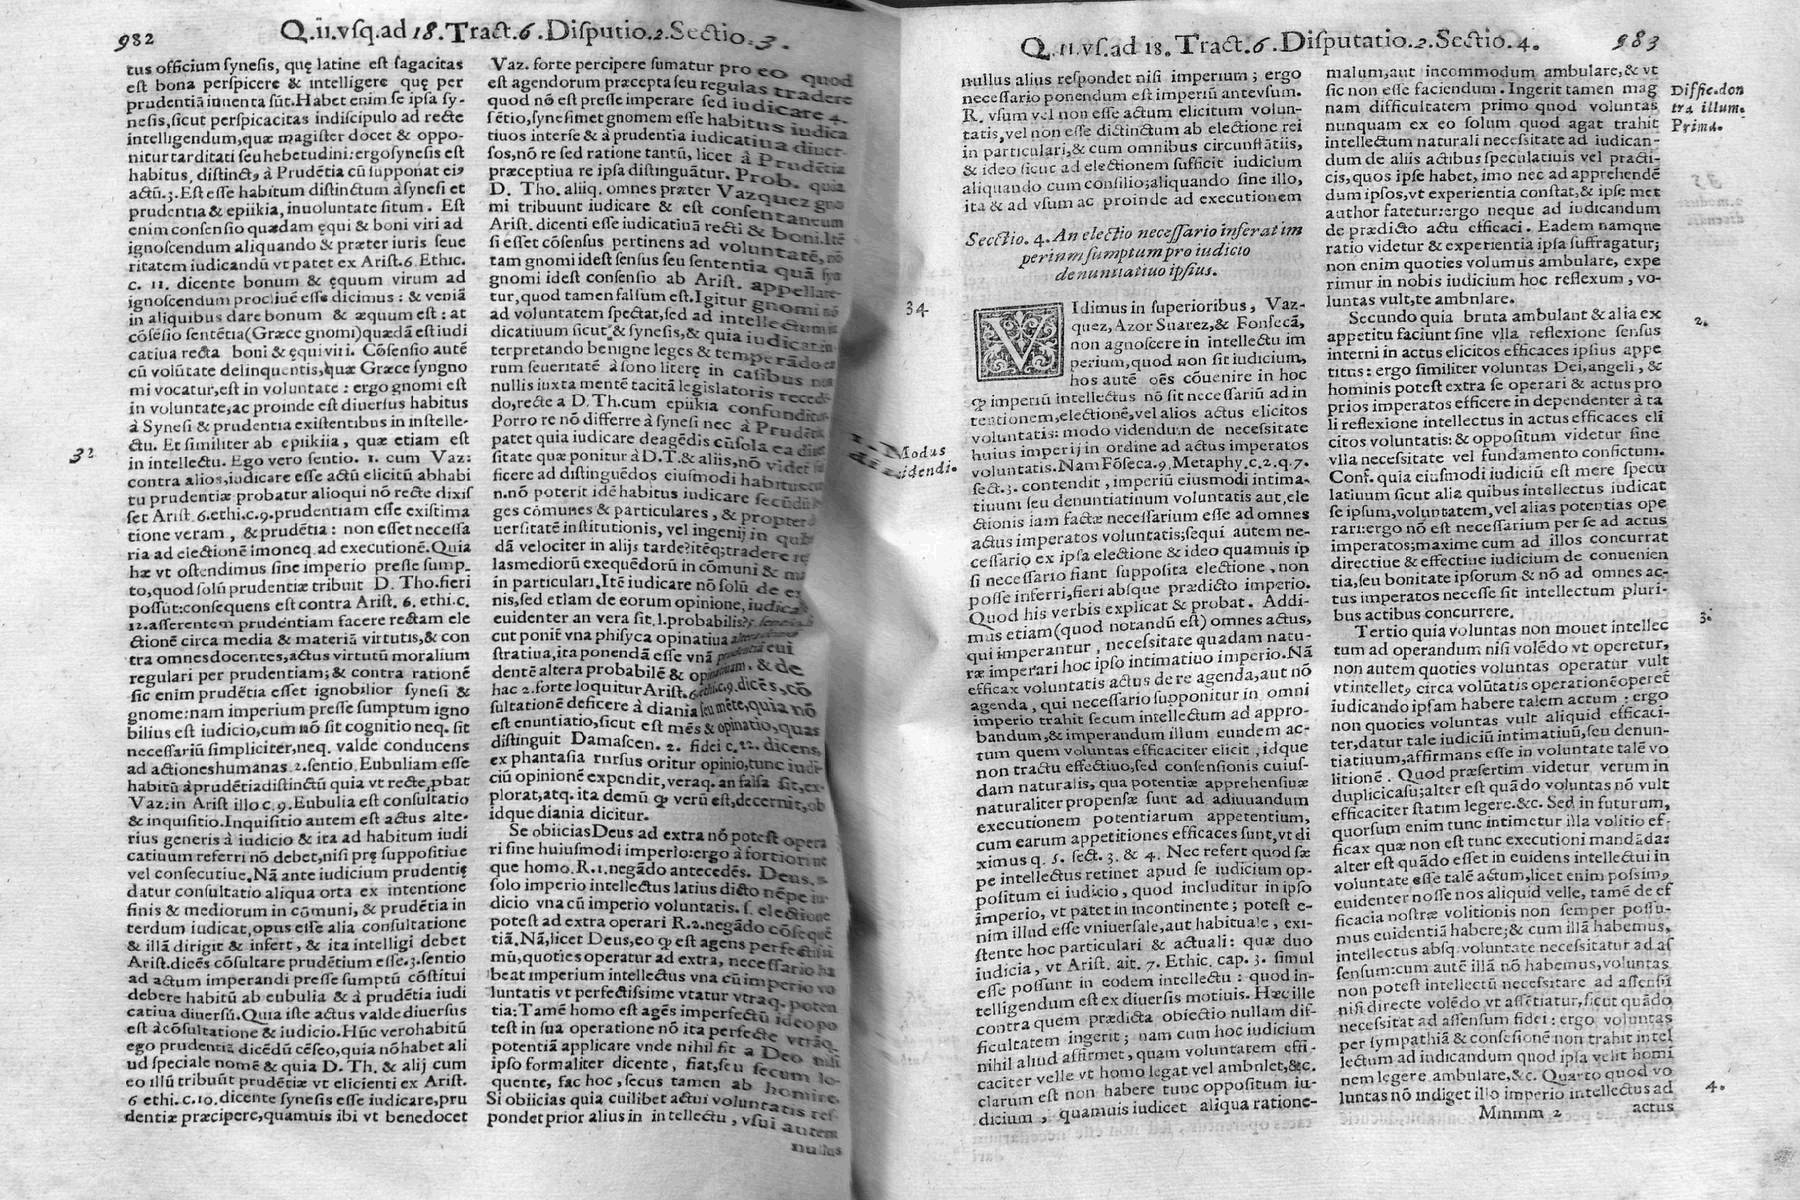 982
Q.ii.vſq.ad 18.Tract.6.Diſputio.2.Sectio.3.
tus officium ſyneſis, quę latine eſt ſagacitas
eſt bona perſpicere & intelligere quę per
prudentiā inuenta ſūt.Habet enim ſe ipſa ſy-
neſis,ſicut perſpicacitas indiſcipulo ad recte
intelligendum,quæ magiſter docet & oppo-
nitur tarditati ſeu hebetudini:ergo ſyneſis eſt
habitus distinctꝰ à Prudētia cū ſupponat eiꝰ
actū.3.Est eſſe habitum diſtinctum à ſyneſi et
prudentia & epiikia, in uoluntate ſitum. Eſt
enim conſenſio quædam ęqui & boni viri ad
ignoſcendum aliquando & præter iuris ſeue
ritatem iudicandū vt patet ex Ariſt.6.Ethic.
c. 11. dicente bonum & ęquum virum ad
ignoſcendum procliuē eſſe dicimus : & veniā
in aliquibus dare bonum & æquum eſt : at
cōſēſio ſentētia(Græce gnomi)quædā eſt iudi
catiua recta boni & ęqui viri. Cōſenſio autē
cū volūtate delinquentis,quæ Græce ſyngno
mi vocatur,eſt in voluntate : ergo gnomi eſt
in voluntate,ac proinde eſt diuerſus habitus
à Syneſi & prudentia exiſtentibus in inſtelle-
ctu. Et ſimiliter ab epiikiia, quæ etiam eſt
32
in intellectu. Ego vero ſentio. 1. cum Vaz:
contra alios,iudicare eſſe actū elicitū ab habi
tu prudentiæ probatur alioqui nō recte dixiſ
ſet Ariſt.6.ethi.c.9.prudentiam eſſe exiſtima
tione veram , & prudētia : non eſſet neceſſa
ria ad electionē imo neq. ad executionē. Quia
hæ vt oſtendimus ſine imperio preſſe ſump-
to,quod ſolū prudentiæ tribuit D. Tho.fieri
poſſūt:conſequens eſt contra Ariſt. 6. ethi.c.
12.aſſerentem prudentiam facere rectam ele
ctionē circa media & materiā virtutis,& con
tra omnes docentes,actus virtutū moralium
regulari per prudentiam;& contra rationē
ſic enim prudētia eſſet ignobilior ſyneſi &
gnome:nam imperium preſſe ſumptum igno
bilius eſt iudicio,cum nō ſit cognitio neq. ſit
neceſſariū ſimpliciter,neq. valde conducens
ad actiones humanas 2.ſentio.Eubuliam eſſe
habitū à prudētia diſtinctū quia vt recte,ꝓbat
Vaz:in Ariſt illo c.9.Eubulia eſt conſultatio
& inquiſitio.Inquiſitio autem eſt actus alte-
rius generis à iudicio & ita ad habitum iudi
catiuum referri nō debet,niſi prę ſuppoſitiue
vel conſecutiue.Nā ante iudicium prudentię
datur conſultatio aliqua orta ex intentione
finis & mediorum in cōmuni, & prudētia in
terdum iudicat,opus eſſe aliā conſultatione
& illā dirigit & infert, & ita intelligi debet
Ariſt.dicēs cōſultare prudētium eſſe.3.ſentio
ad actum imperandi preſſe ſumptū cōſtitui
debere habitū ab eubulia & à prudētia iudi
catiua diuerſū.Quia iſte actus valde diuerſus
eſt à cōſultatione & iudicio.Hūc vero habitū
ego prudentiā dicēdū cēſeo,quia nō habet ali
ud ſpeciale nomē & quia D. Th. & alij cum
eo illū tribuūt prudētiæ vt elicienti ex Ariſt.
6 ethi.c.10.dicente ſyneſis eſſe iudicare,pru
dentiæ præcipere,quamuis ibi vt benedocet
Vaz. forte percipere ſumatur pro eo quod
eſt agendorum præcepta ſeu regulas tradere
quod nō eſt preſſe imperare ſed iudicare 4.
ſētio,ſyneſim et gnomem eſſe habitus iudica
tiuos interſe & à prudentia iudicatiua diuer-
ſos,nō re ſed ratione tantū, licet à Prudētia
præceptiua re ipſa diſtinguātur. Prob. quia
D. Tho. aliiq. omnes præter Vazquez gno
mi tribuunt iudicare & eſt conſentaneum
Ariſt. dicenti eſſe iudicatiuā recti & boni.Itē
ſi eſſet cōſenſus pertinens ad voluntatē, nō
tam gnomi ideſt ſenſus ſeu ſententia quā ſyn
gnomi ideſt conſenſio ab Ariſt. appellare-
tur,quod tamen falſum eſt.Igitur gnomi nō
ad voluntatem ſpectat,ſed ad intellectum
dicatiuum ſicut & ſyneſis,& quia iudicat in
terpretando benigne leges & temperādo
rum ſeueritatē à ſono literę in caſibus non
nullis iuxta mentē tacitā legislatoris recedē
do,recte a D. Th.cum epiikia confunditur
Porro re nō differre à ſyneſi nec à Prudētia
patet quia iudicare de agēdis cūſola ea diuer
ſitate quæ ponitur à D.T.& aliis,nō videt ſuf
ficere ad diſtinguēdos eiuſmodi habitus
n.nō poterit idē habitus iudicare ſecūdū
ges cōmunes & particulares , & propter
uerſitatē inſtitutionis, vel ingenij in qui
dā velociter in alijs tarde?itēq;tradere re
las mediorū exequēdorū in cōmuni &
in particulari.Itē iudicare nō ſolū de
nis,ſed etlam de eorum opinione, iudica
euidenter an vera ſit.l.probabilis?
cut ponit vna phiſyca opinatiua
ſtratiua,ita ponendā eſſe vnā prudentiā eui
dentē altera probabilē & opinatiuam. & de
hac 2.forte loquitur Ariſt.6.ethi.c.9.dicēs,cō
ſultationē deficere à diania ſeu mēte,quia nō
eſt enuntiatio,ſicut eſt mēs & opinatio,quas
diſtinguit Damaſcen. 2. fidei c.22. dicens,
ex phantaſia rurſus oritur opinio,tunc iudi-
ciū opinionē expendit, veraq. an falſa ſit,ex-
plorat,atq. ita demū ꝙ verū eſt,decernit,ob
idque diania dicitur.
Se obiicias Deus ad extra nō poteſt opera
ri ſine huiuſmodi imperio:ergo à fortiori ne
que homo.R.1.negādo antecedēs. Deus.n.
ſolo imperio intellectus latius dicto nēpe iu-
dicio vna cū imperio voluntatis. ſ. electione
poteſt ad extra operari R.2.negādo cōſequē
tiā.Nā,licet Deus,eo ꝙ eſt agens perfectiſſi
mū,quoties operatur ad extra, neceſſario ha
beat imperium intellectus vna cū imperio vo
luntatis vt perfectiſſime vtatur vtraq. poten
tia: Tamē homo eſt agēs imperfectū ideo po
teſt in ſua operatione nō ita perfecte vtrāq.
potentiā applicare vnde nihil fit a Deo niſi
ipſo formaliter dicente, fiat,ſeu ſecum lo-
quente, fac hoc , ſecus tamen ab homine.
Si obiicias quia cuilibet actui voluntatis reſ-
pondet prior alius in intellectu , vſui autem
nullus
Q.11.vſ.ad 18.Tract.6.Diſputatio.2.Sectio.4.
983
nullus alius reſpondet niſi imperium ; ergo
neceſſario ponendum eſt imperiū antevſum.
R. vſum vel non eſſe actum elicitum volun-
tatis,vel non eſſe diſtinctum ab electione rei
in particulari,& cum omnibus circunſtātiis,
& ideo ſicut ad electionem ſufficit iudicium
aliquando cum conſilio;aliquando ſine illo,
ita & ad vſum ac proinde ad executionem
Secctio. 4. An electio neceſſario inferat im
perium ſumptum pro iudicio
denuntiatiuo ipſius.
34
VIdimus in ſuperioribus, Vaz-
quez, Azor Suarez,& Fonſecā,
non agnoſcere in intellectu im
perium,quod non ſit iudicium,
hos autē oēs cōuenire in hoc
ꝙ imperiū intellectus nō ſit neceſſariū ad in
tentionem,electionē,vel alios actus elicitos
1. Modus
voluntatis: modo videndum de neceſſitate
dicendi.
huius imperij in ordine ad actus imperatos
voluntatis. Nam Fōſeca.9.Metaphy.c.2.q.7.
ſect.3. contendit , imperiū eiuſmodi intima-
tiuum ſeu denuntiatiuum voluntatis aut,ele
ctionis iam factæ neceſſarium eſſe ad omnes
actus imperatos voluntatis;ſequi autem ne-
ceſſario ex ipſa electione & ideo quamuis ip
ſi neceſſario fiant ſuppoſita electione , non
poſſe inferri,fieri abſque prædicto imperio.
Quod his verbis explicat & probat. Addi-
mus etiam(quod notandū eſt) omnes actus,
qui imperantur , neceſſitate quadam natu-
ræ imperari hoc ipſo intimatiuo imperio.Nā
efficax voluntatis actus de re agenda,aut nō
agenda, qui neceſſario ſupponitur in omni
imperio trahit ſecum intellectum ad appro-
bandum,& imperandum illum eundem ac-
tum quem voluntas efficaciter elicit ; idque
non tractu effectiuo,ſed conſenſionis cuiuſ-
dam naturalis, qua potentiæ apprehenſiuæ
naturaliter propenſæ ſunt ad adiuuandum
executionem potentiarum appetentium,
cum earum appetitiones efficaces ſunt,vt di
ximus q. 5. ſect. 3. & 4. Nec refert quod ſæ
pe intellectus retinet apud ſe iudicium op-
poſitum ei iudicio, quod includitur in ipſo
imperio, vt patet in incontinente ; poteſt e-
nim illud eſſe vniuerſale,aut habituale, exi-
ſtente hoc particulari & actuali: quæ duo
iudicia, vt Ariſt. ait. 7. Ethic. cap. 3. ſimul
eſſe poſſunt in eodem intellectu : quod in-
telligendum eſt ex diuerſis motiuis. Hæc ille
contra quem prædicta obiectio nullam dif-
ficultatem ingerit ; nam cum hoc iudicium
nihil aliud affirmet, quam voluntatem effi-
caciter velle vt homo legat vel ambulet,&c.
clarum eſt non habere tunc oppoſitum iu-
dicium , quamuis iudicet aliqua ratione-
malum,aut incommodum ambulare,& vt
ſic non eſſe faciendum. Ingerit tamen mag
Diffic.con
nam difficultatem primo quod voluntas
tra illum.
nunquam ex eo ſolum quod agat trahit
Prima.
intellectum naturali neceſſitate ad iudican-
dum de aliis actibus ſpeculatiuis vel practi-
cis,quos ipſe habet, imo nec ad apprehendē
dum ipſos,vt experientia conſtat,& ipſe met
author fatetur:ergo neque ad iudicandum
de prædicto actu efficaci. Eadem namque
ratio videtur & experientia ipſa ſuffragatur;
non enim quoties volumus ambulare, expe
rimur in nobis iudicium hoc reflexum , vo-
luntas vult,te ambnlare.
2.
Secundo quia bruta ambulant & alia ex
appetitu faciunt ſine vlla reflexione ſenſus
interni in actus elicitos efficaces ipſius appe
titus : ergo ſimiliter voluntas Dei,angeli, &
hominis poteſt extra ſe operari & actus pro
prios imperatos efficere in dependenter à ta
li reflexione intellectus in actus efficaces eli
citos voluntatis: & oppoſitum videtur ſine
vlla neceſſitate vel fundamento confictum.
Conf. quia eiuſmodi iudiciū eſt mere ſpecu
latiuum ſicut alia quibus intellectus iudicat
ſe ipſum,voluntatem,vel alias potentias ope
rari:ergo nō eſt neceſſarium per ſe ad actus
imperatos;maxime cum ad illos concurrat
directiue & effectiue iudicium de conuenien
tia,ſeu bonitate ipſorum & nō ad omnes ac-
tus imperatos neceſſe ſit intellectum pluri-
bus actibus concurrere.
3.
Tertio quia voluntas non mouet intellec
tum ad operandum niſi volēdo vt operetur,
non autem quoties voluntas operatur vult
vt intellectꝰ circa volūtatis operationē operet
iudicando ipſam habere talem actum : ergo
non quoties voluntas vult aliquid efficaci-
ter,datur tale iudiciū intimatiuū,ſeu denun-
tiatiuum,affirmans eſſe in voluntate talē vo
litionē . Quod præſertim videtur verum in
duplici caſu;alter eſt quādo voluntas nō vult
efficaciter ſtatim legere.&c. Sed in futurum,
quorſum enim tunc intimetur illa volitio ef-
ficax quæ non eſt tunc executioni mandāda:
alter eſt quādo eſſet in euidens intellectui in
voluntate eſſe talē actum,licet enim poſſimꝰ
euidenter noſſe nos aliquid velle, tamē de ef
ficacia noſtræ volitionis non ſemper poſſu-
mus euidentiā habere;& cum illā habemus,
intellectus abſq. voluntate neceſſitatur ad aſ
ſenſum:cum autē illā nō habemus,voluntas
non poteſt intellectū neceſſitare ad aſſenſū
niſi directe volēdo vt aſſētiatur,ſicut quādo
neceſſitat ad aſſenſum fidei : ergo voluntas
per ſympathiā & conſeſionē non trahit intel
lectum ad iudicandum quod ipſa velit homi
4.
nem legere ambulare,&c. Quarto quod vo
luntas nō indiget illo imperio intellectus ad
Mmmm 2
actus